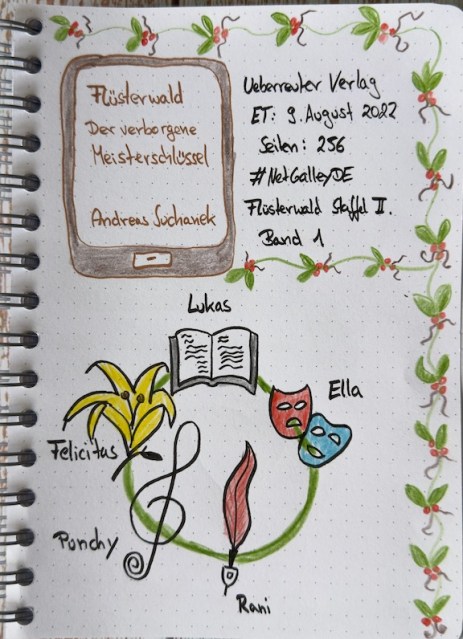 Flüsterwald
Der verborgene
Meisterschlüssel
Andreas Suchanek
Ueberreuter Verlag
ET: 9. August 2022
Seiten: 256
#NetGalleyDE
Flüsterwald Staffel II.
Band 1
Lukas
Ella
Felicitas
Punchy
Rani